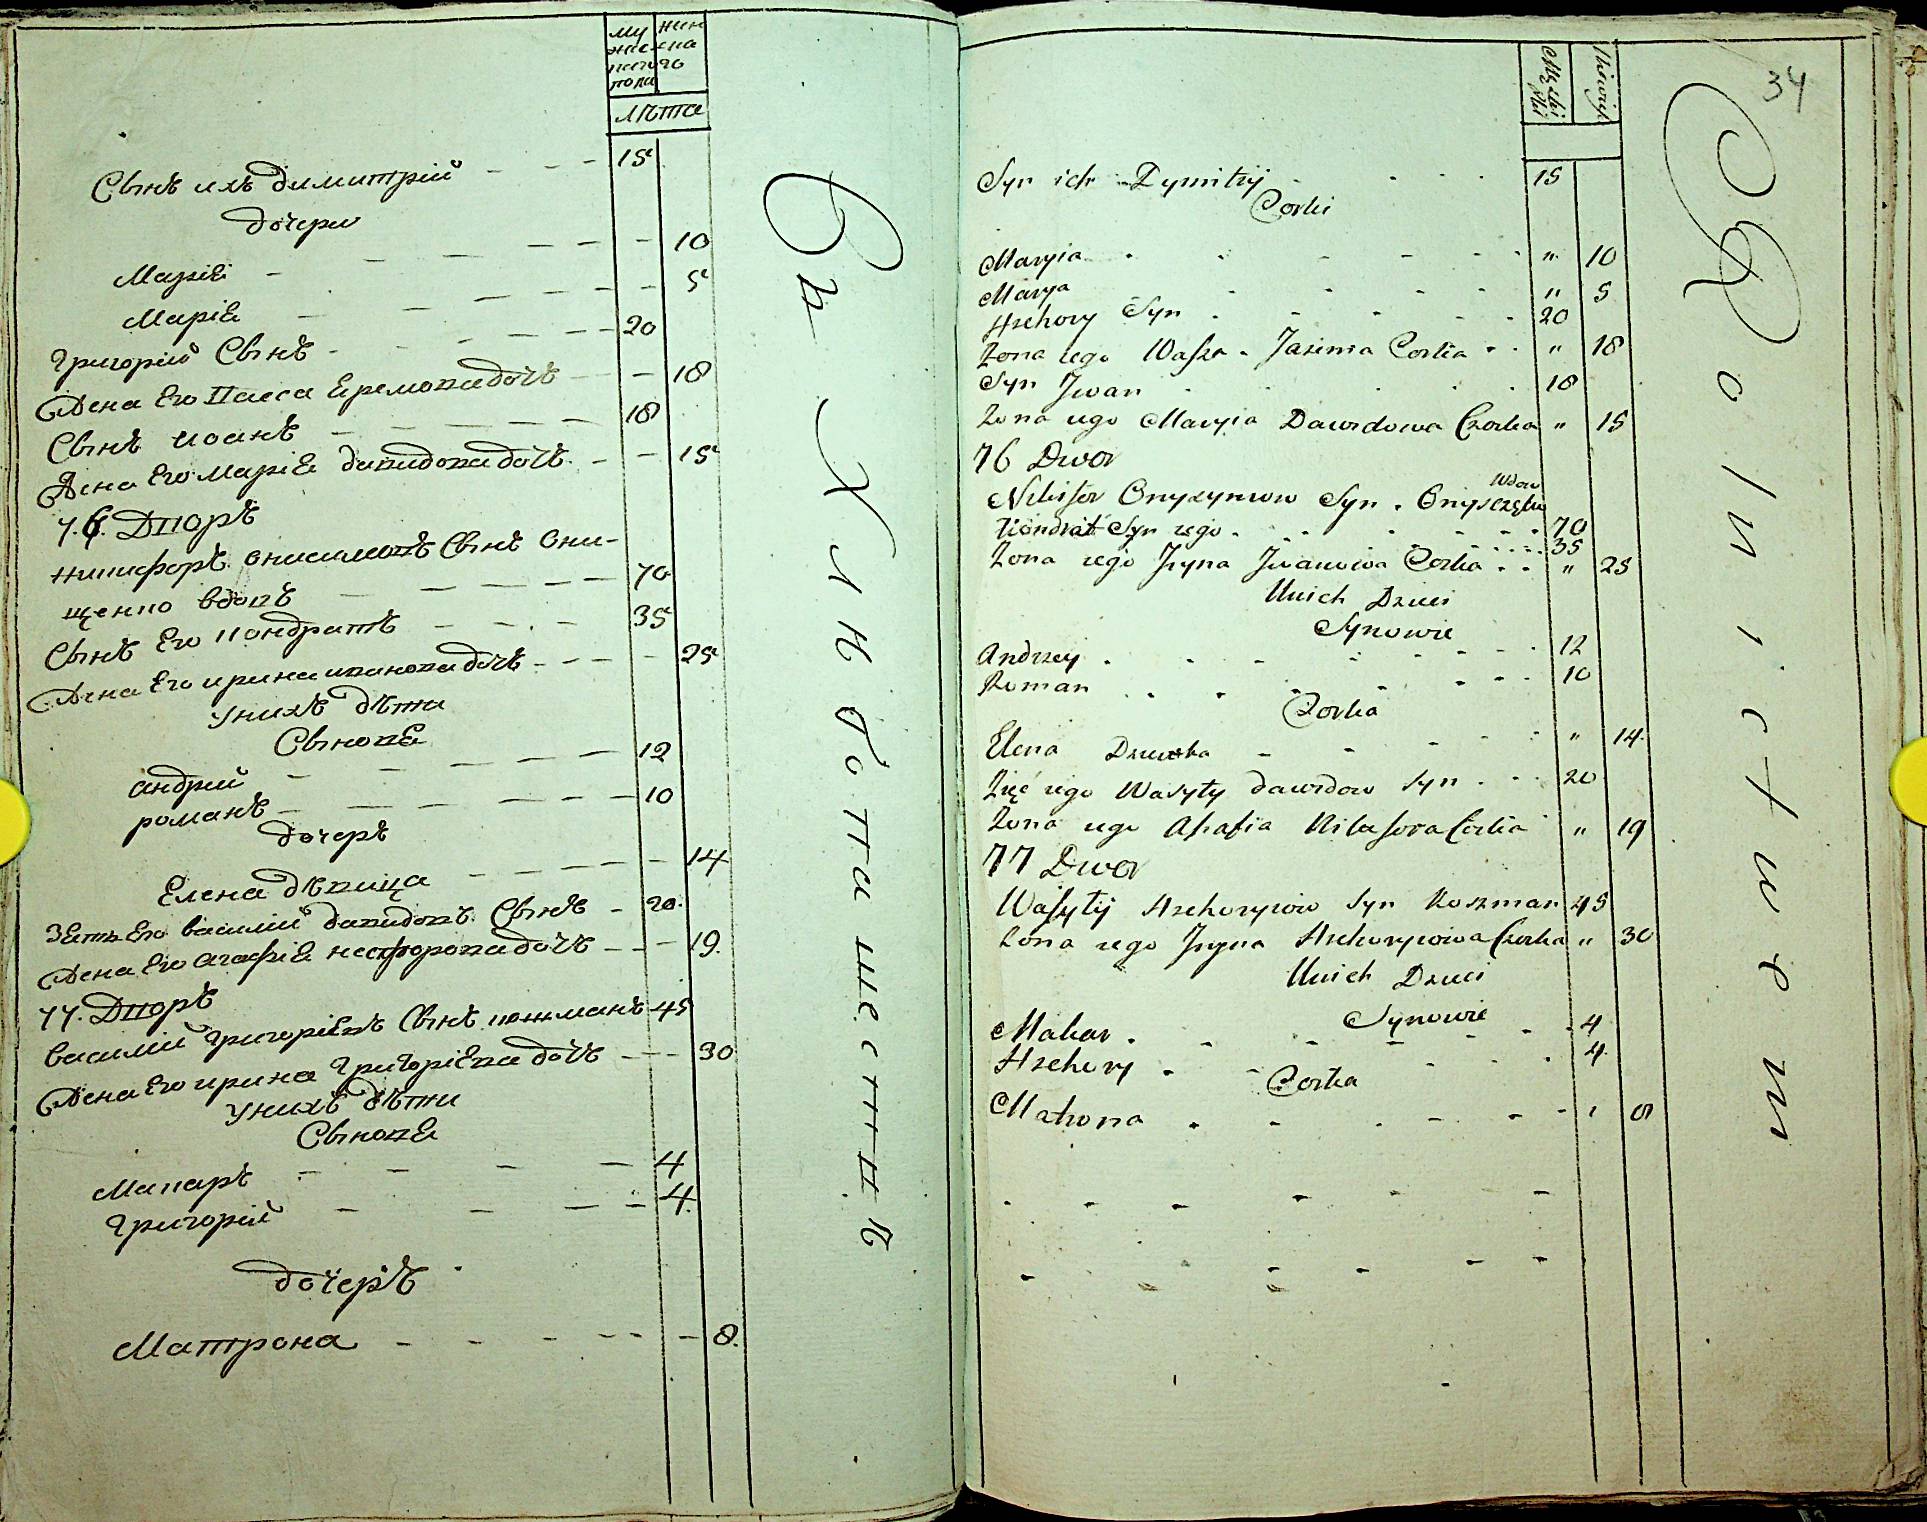 му жин
жис ска
кого го
пола
лѣта
Сынъ ихъ димитрій - - - 15
дочери
Маріѣ - - - 10
Маріѣ - - - 5
Григорій Сынъ - - - 20
Жена Его Пасса Еремова дочъ - - 18
Сынъ иоанъ - - - 18
Жена Его Маріѣ давидова дочъ - - 15
76. Дворъ
никифоръ онисимовъ Сынъ Они-
щенко вдовъ - - - 70
Сынъ Его кондратъ - - - 35
Жена Его ирина иванова дочъ - - - 25
у нихъ дѣти
Сыновѣ
андрій - - - 12
романъ - - - 10
дочеръ
Елена дѣвица - - - 14
Зѣть Его василій давидовъ Сынъ - 20
Жена Его агафіѣ несфорова дочъ - - - 19.
77. Дворъ
василій григоріевъ Сынъ кожманъ 45
Жена Его ирина григоріева дочъ - - - 30
у нихъ дѣти
Сыновѣ
Макаръ - - - 4
Григорій - - - 4.
дочеръ
Матрона - - - 8.
34
Syn ich Dymitry 15
Corki
Maryia " 10
Marya " 5
Hrehory Syn 20
Zona iego Wassa Jaremia Corka " 18
Syn Jwan 18
Zona iego Maryia Dawidowa Czorka " 15
76 Dwor
Wdow
Nikifor Onyzymow Syn Onyszczęko 70
Kondrat Syn iego 35
Zona iego Jryna Jwanowa Corka " 25
U nich Dzieci
Synowie
Andrzey 12
Roman 10
Corka
Elena Dziewka " 14.
Zięć iego Wasyty dawidow Syn 20
Zona iego Ahafia Nikifora Corka " 19
77 Dwor
Wasyty Hrehoryiow Syn Kozman 45
Zona iego Jryna Hrehoryiowa Czorka " 30
U nich Dzieci
Synowie
Makar 4
Hrehory 4
Corka
Matrona 8